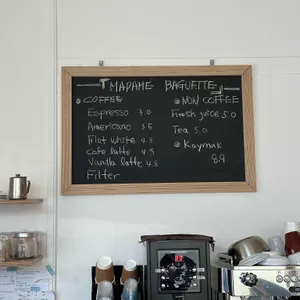 MADAME BAGUETTE
COFFEE
Espresso 3.0
Americano 3.5
Flat white 4.3
Cafe latte 4.5
Vanilla latte 4.8
Filter
NON COFFEE
Fresh juice 5.0
Tea 5.0
Kaymak
8.9